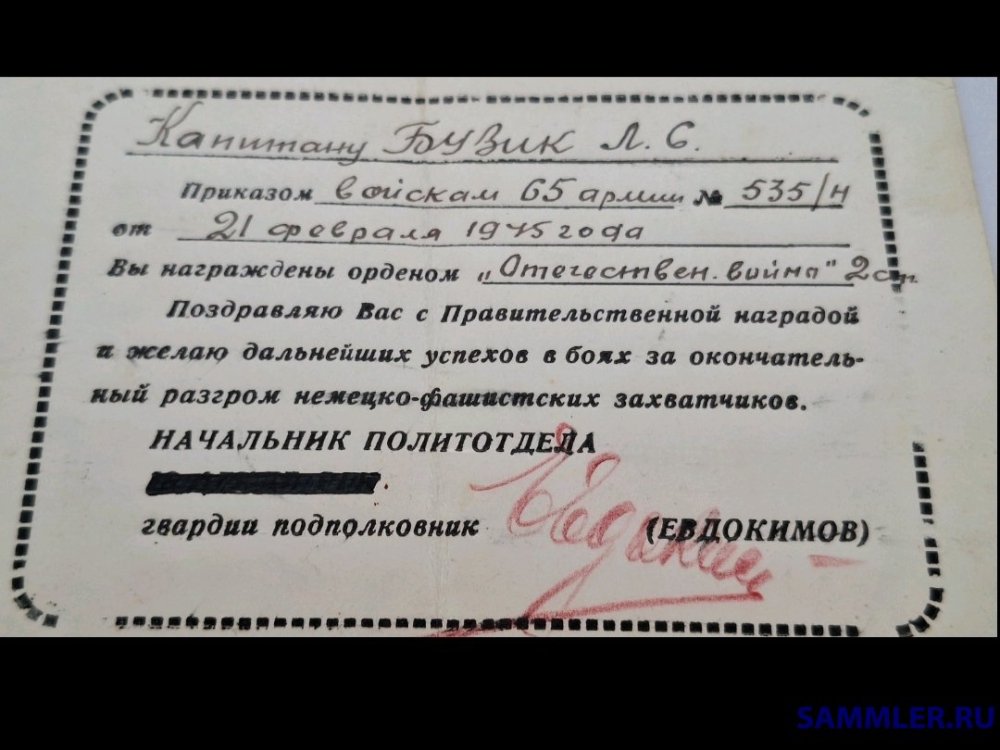 Капитану БУЗИК Л. С.
Приказом войскам 65 армии № 535/н
от 21 февраля 1945 года
Вы награждены орденом „Отечествен. войны" 2 ст.
Поздравляю Вас с Правительственной наградой
и желаю дальнейших успехов в боях за окончатель-
ный разгром немецко-фашистских захватчиков.
НАЧАЛЬНИК ПОЛИТОТДЕЛА
гвардии подполковник (ЕВДОКИМОВ)
SAMMLER.RU